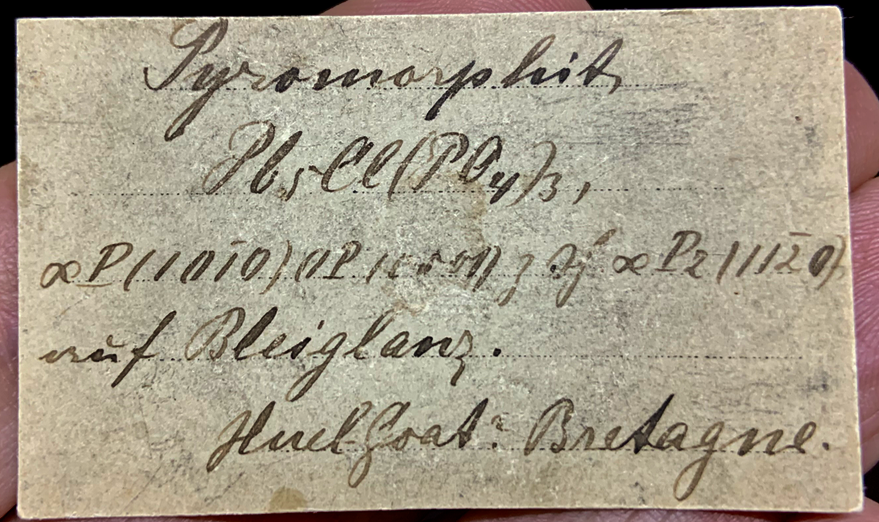 Pyromorphit
Pb₅Cl(PO₄)₃,
∞P(101̅0) 0P (0001) ∞P2 (112̅0)
auf Bleiglanz.
Huelgoat: Bretagne.